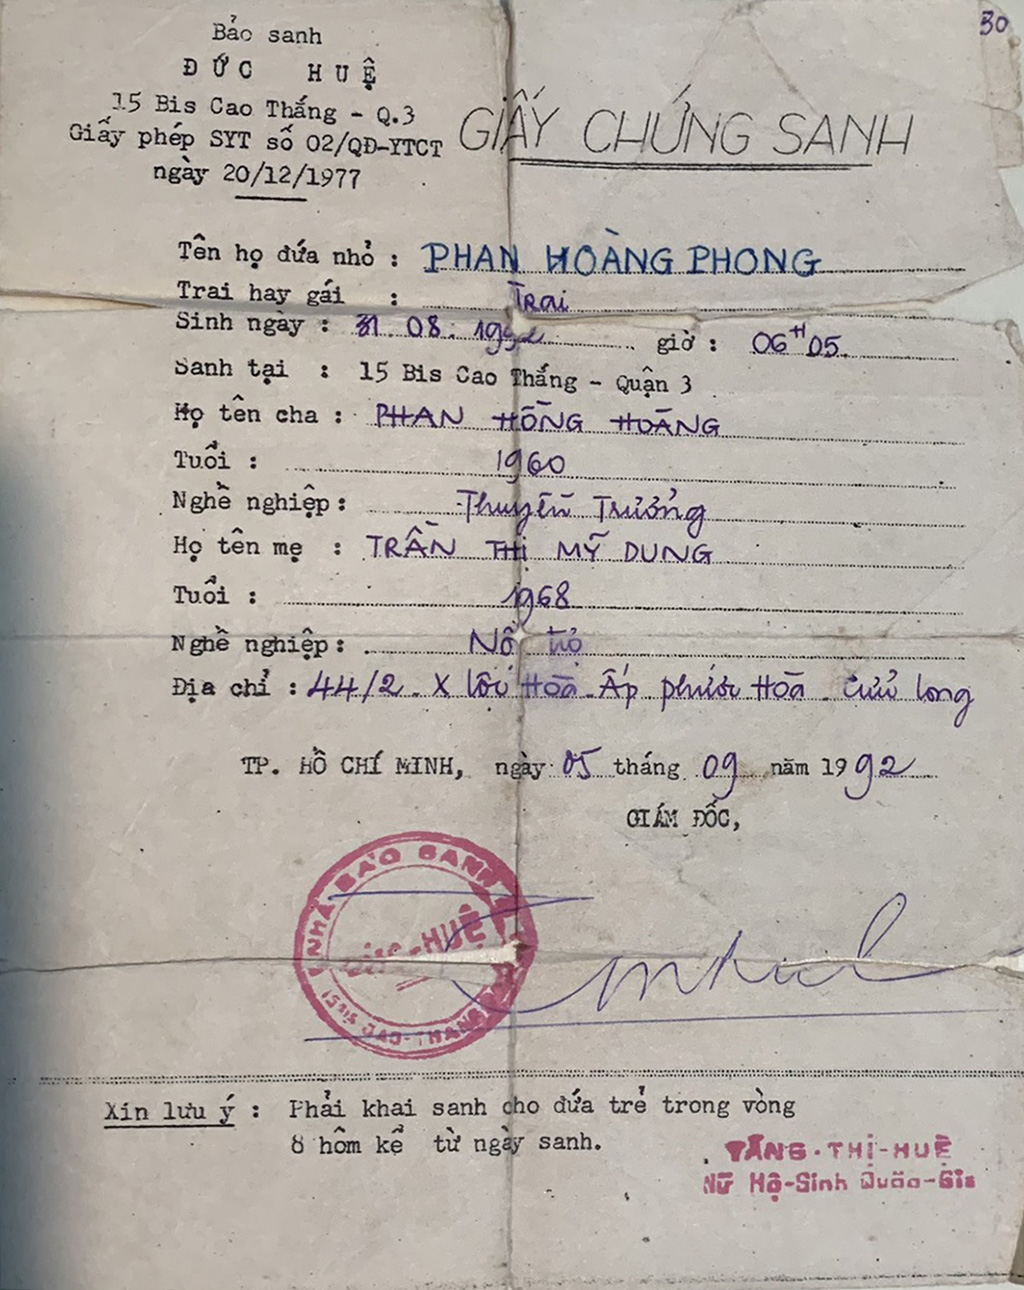 30
Bảo sanh
ĐỨC HUỆ
15 Bis Cao Thắng - Q.3
Giấy phép SYT số 02/QĐ-YTCT
ngày 20/12/1977
GIẤY CHỨNG SANH
Tên họ đứa nhỏ : PHAN HOÀNG PHONG
Trai hay gái : Trai
Sinh ngày : 31.08.1992 giờ : 06H05.
Sanh tại : 15 Bis Cao Thắng - Quận 3
Họ tên cha : PHAN HỒNG HOÀNG
Tuổi : 1960
Nghề nghiệp : Thuyền Trưởng
Họ tên mẹ : TRẦN THỊ MỸ DUNG
Tuổi : 1968
Nghề nghiệp : Nội trợ
Địa chỉ : 44/2 X Hoà - Ấp Phước Hoà - Cửu Long
TP. HỒ CHÍ MINH, ngày 05 tháng 09 năm 1992
GIÁM ĐỐC,
NHÀ BẢO SANH
ĐỨC-HUỆ
15BIS CAO-THANG
Xin lưu ý : Phải khai sanh cho đứa trẻ trong vòng
8 hôm kể từ ngày sanh.
TĂNG-THỊ-HUỆ
Nữ Hộ-Sinh Quốc-Gia